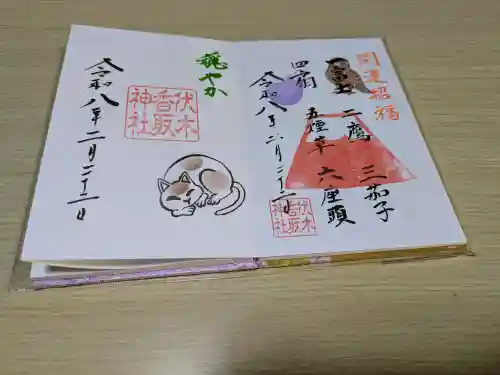 開運招福
一富士
二鷹
三茄子
四扇
五煙草
六座頭
令和八年二月二十二日
伏木
香取
神社
穏やか
伏木
香取
神社
令和八年二月二十二日